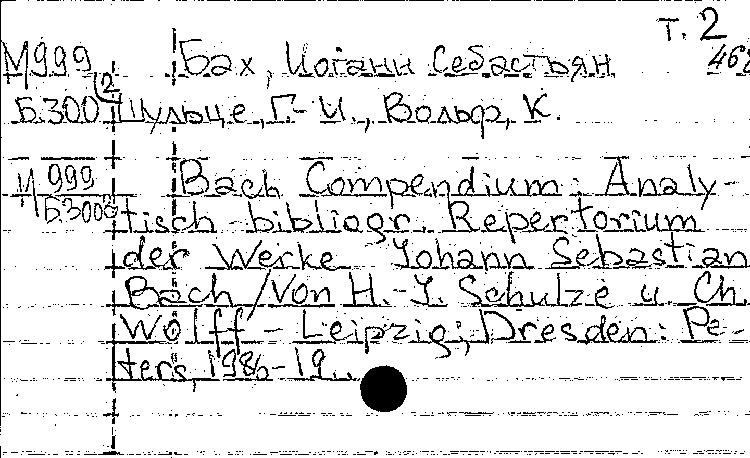 т. 2
М999 Бах, Иоганн Себастьян
Б300 Шульце, Г.-И., Вольф, К.
М 999 Bach Compendium: Analy-
Б300 tisch-bibliogr. Repertorium
der Werke Johann Sebastian
Bach / Von H.-J. Schulze u. Ch.
Wolff - Leipzig; Dresden: Pe-
ters, 1986-19..